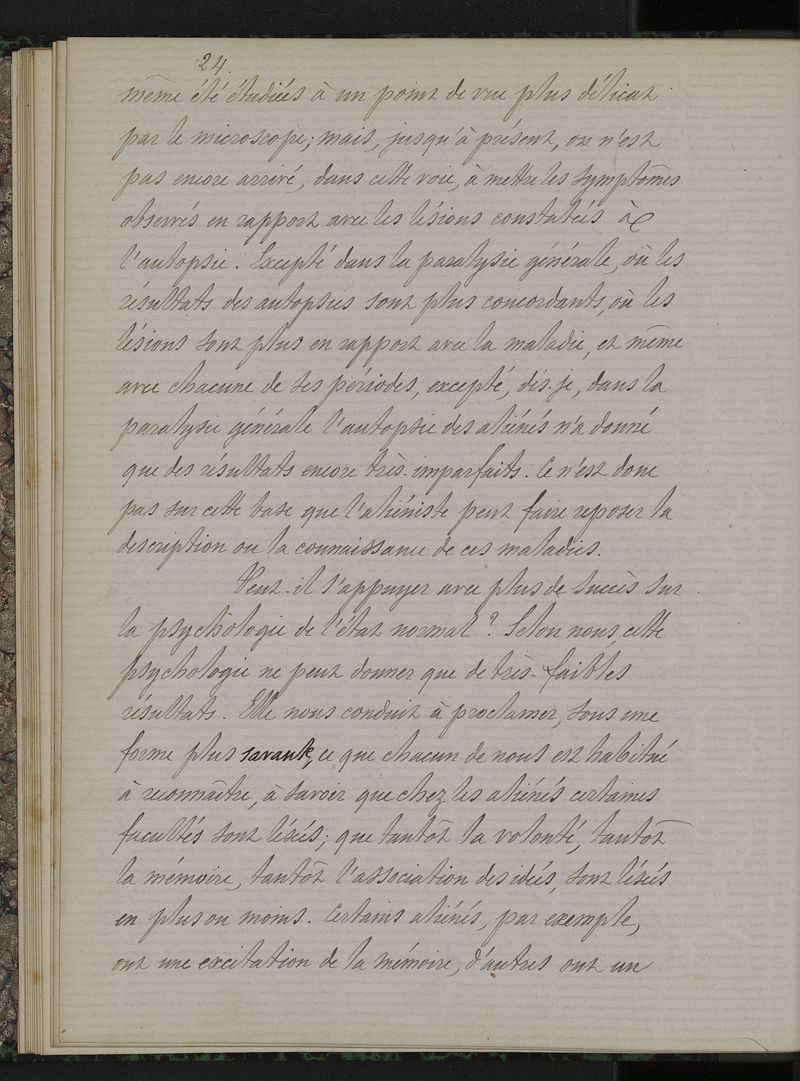 24.
même été étudiés à un point de vue plus délicat
par le microscope; mais, jusqu'à présent, on n'est
pas encore arrivé, dans cette voie, à mettre les symptômes
observés en rapport avec les lésions constatées à
l'autopsie. Excepté dans la paralysie générale, où les
résultats des autopsies sont plus concordants, où les
lésions sont plus en rapport avec la maladie, et même
avec chacune de ses périodes, excepté, dis-je, dans la
paralysie générale l'autopsie des aliénés n'a donné
que des résultats encore très-imparfaits. Ce n'est donc
pas sur cette base que l'aliéniste peut faire reposer la
description ou la connaissance de ces maladies.
Peut-il l'appuyer avec plus de succès sur
la psychologie de l'état normal? Selon nous, cette
psychologie ne peut donner que de très-faibles
résultats. Elle nous conduit à proclamer, sous une
forme plus savante, ce que chacun de nous est habitué
à reconnaître, à savoir que chez les aliénés certaines
facultés sont lésées; que tantôt la volonté, tantôt
la mémoire, tantôt l'association des idées, sont lésées
en plus ou moins. Certains aliénés, par exemple,
ont une excitation de la mémoire, d'autres ont un